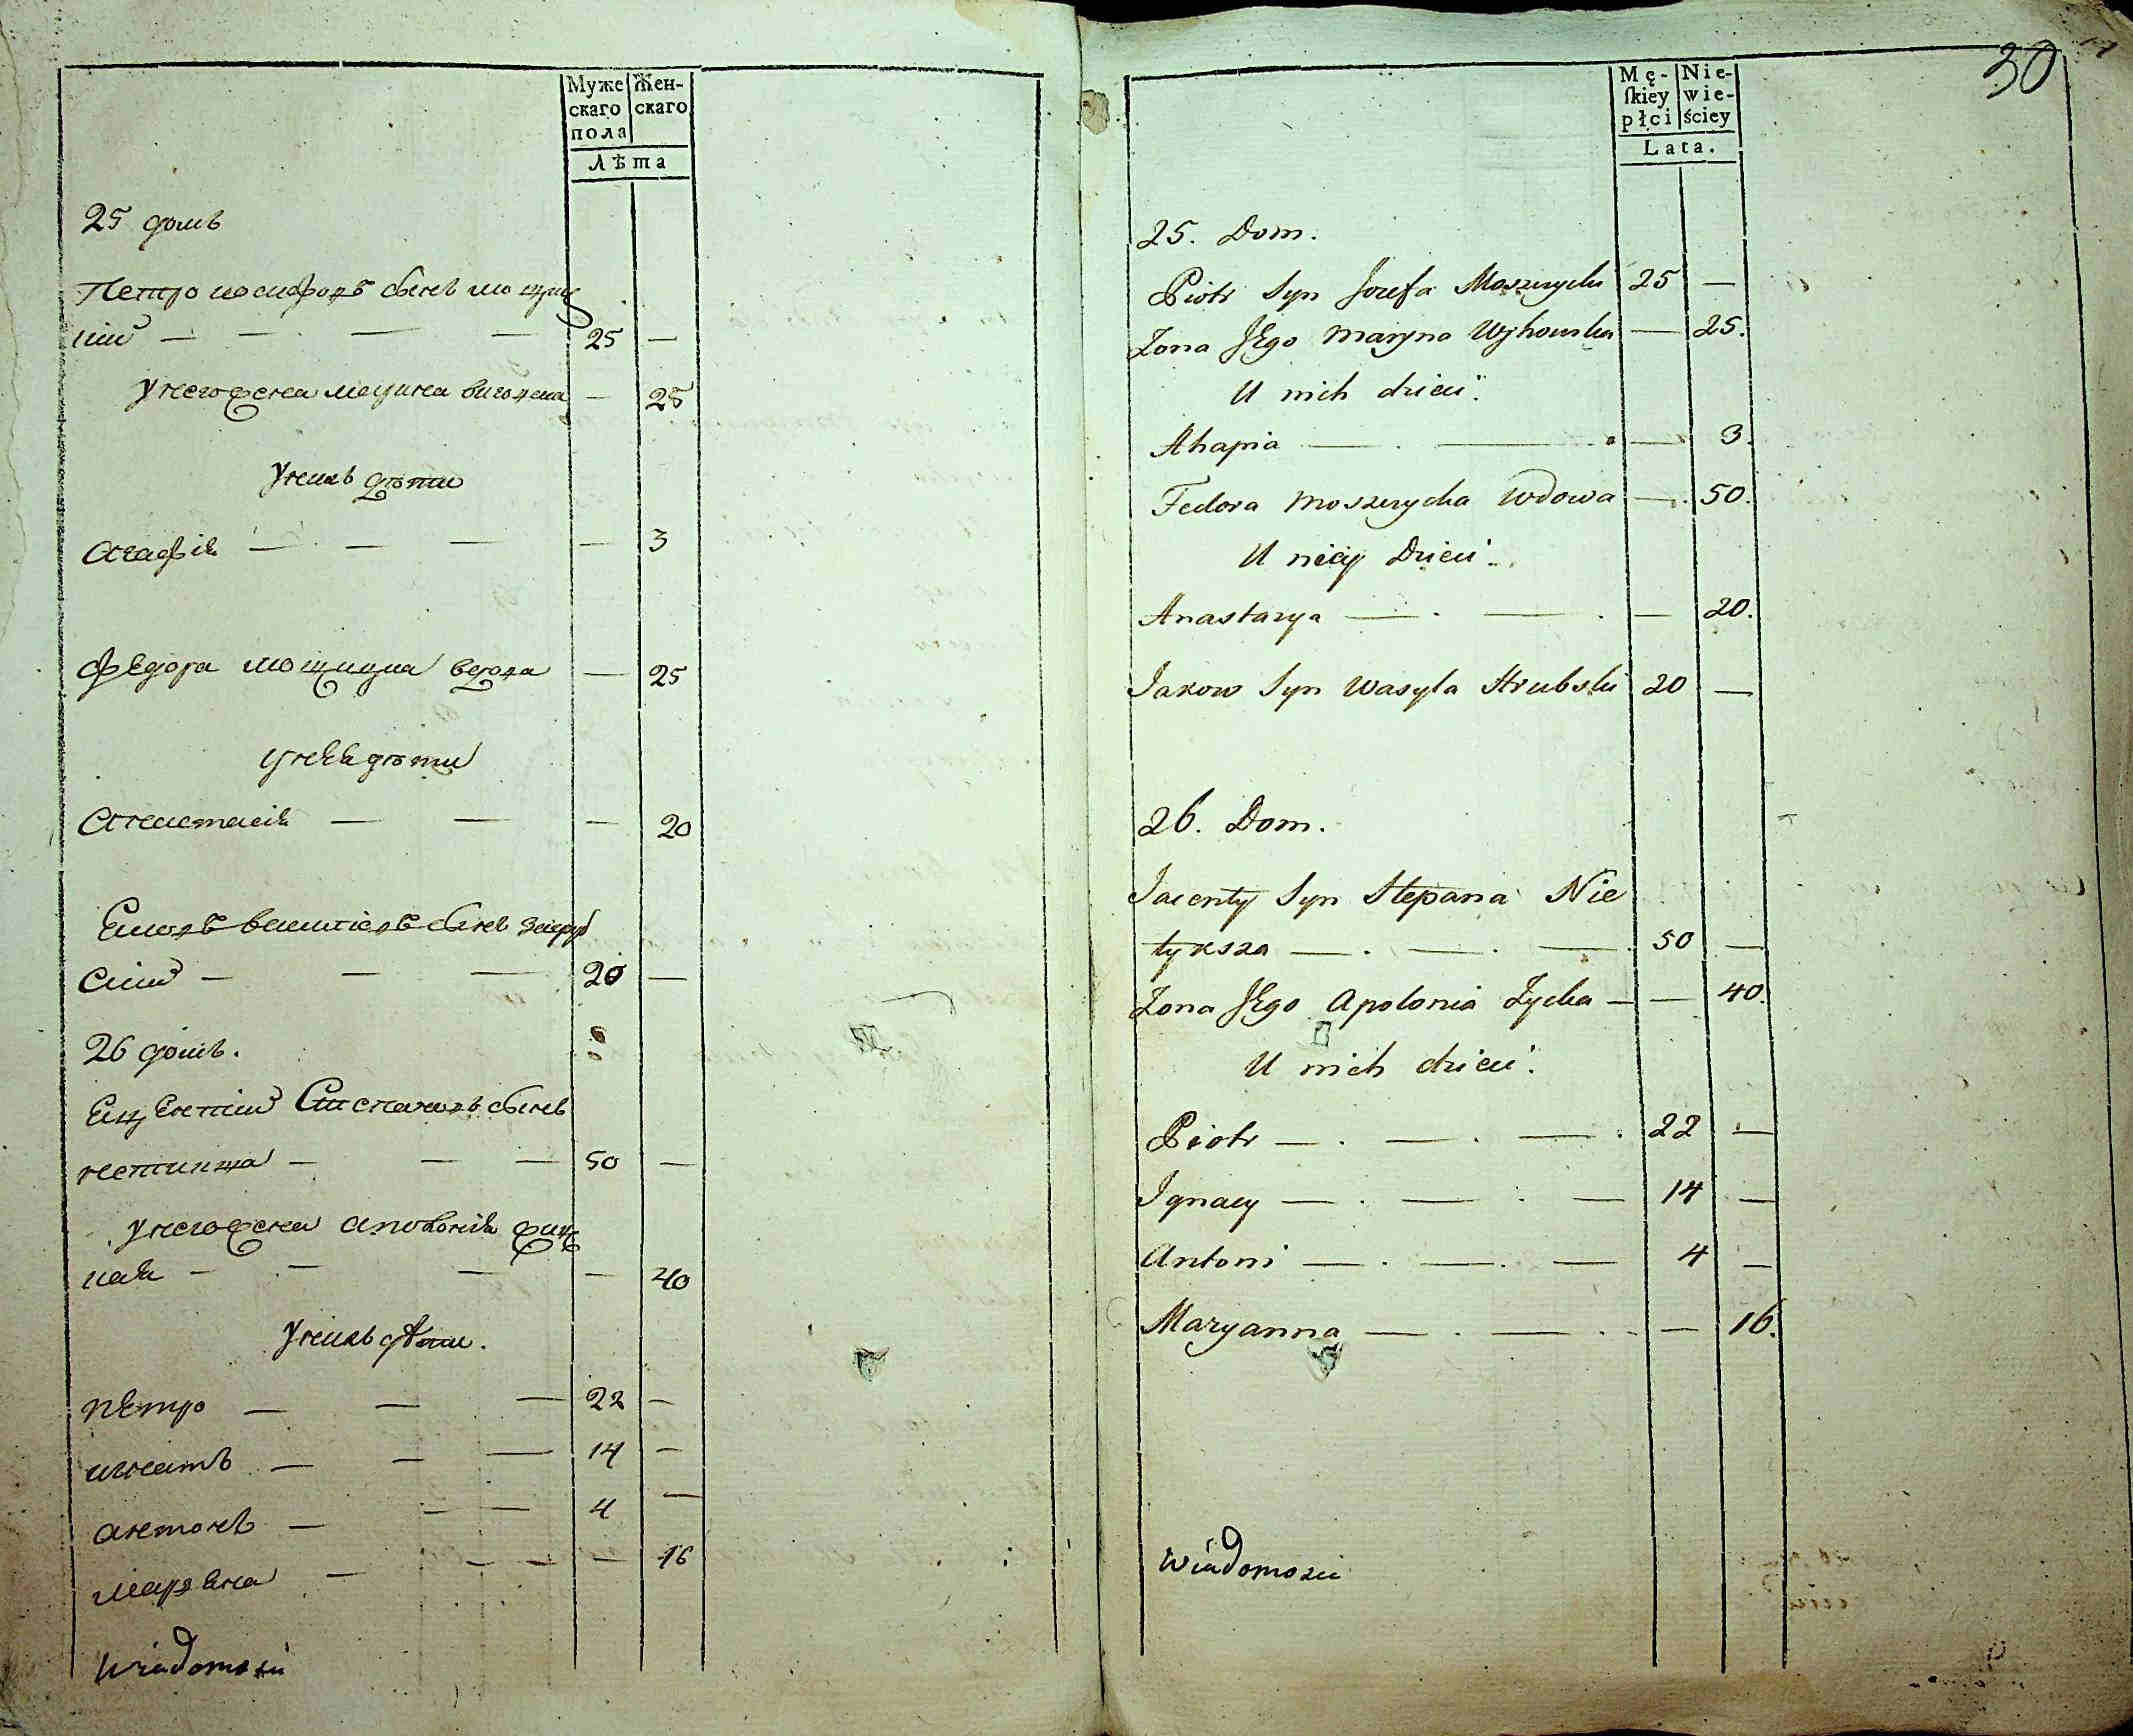 Муже Жен-
скаго скаго
пола
Лѣта
25 домъ
Петро иосифовъ сынъ мощиц
кии — — — — 25 —
у него жена марина виговска — 25
у нихъ дѣти
агафія — — — — 3
федора мощицка вдова — 25
у нея дѣти
анастасія — — — 20
Ековъ василіевъ сынъ загруб
скии — — — 20 —
26 домъ.
Еценти Степановъ сынъ
нетикша — — — 50 —
у него жена аполонія жиц
кая — — — — 40
у нихъ дѣти.
петро — — — 22 —
игнатъ — — — 14 —
антонъ — — — 4 —
маряна — — — — 16
Wiadomości
30
Mę- Nie-
ſkiey wie-
płci ściey
Lata.
25. Dom.
Piotr Syn Jozefa Moszczycki 25 —
Zona JEgo Maryna Wyhowska — 25.
U nich dzieci:
Ahapia — . — — 3.
Fedora Moszczycka Wdowa — . 50.
U niey Dzieci.
Anastazya — . — . — 20.
Jakow Syn Wasyla Hrubski 20 —
26. Dom.
Jacenty Syn Stepana Nie
tyksza — . — . — . 50 —
Zona JEgo Apolonia Zycka — — 40.
U nich dzieci.
Piotr — . — . — . 22 —
Ignacy — . — . — 14 —
Antoni — . — . — 4 —
Maryanna — . — . . — 16.
Wiadomości